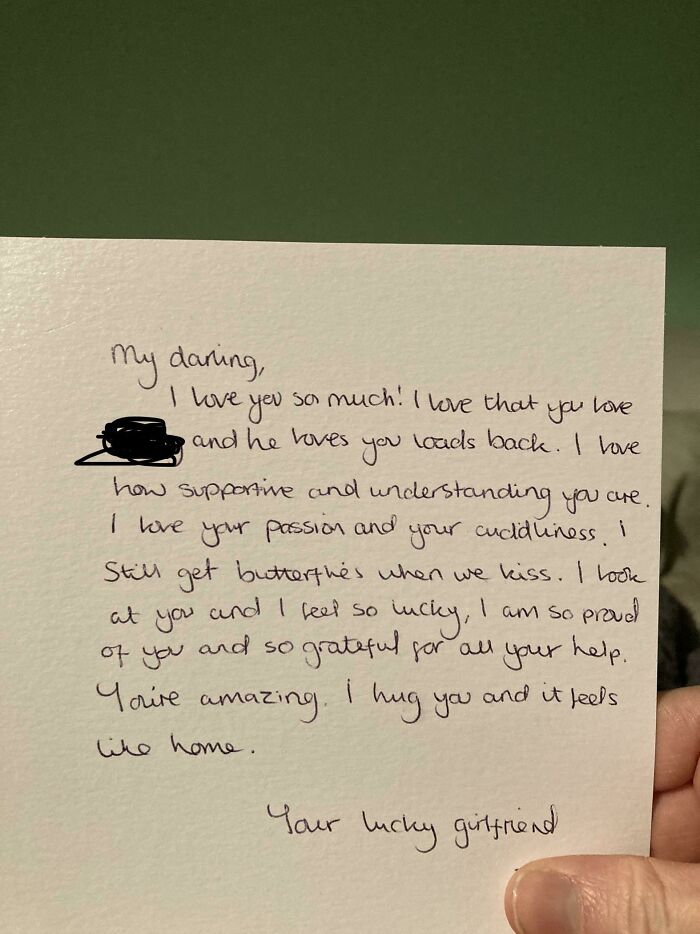 My darling,
I love you so much! I love that you love
and he loves you loads back. I love
how supportive and understanding you are.
I love your passion and your cuddliness. I
still get butterflies when we kiss. I look
at you and I feel so lucky, I am so proud
of you and so grateful for all your help.
You're amazing. I hug you and it feels
like home.
Your lucky girlfriend